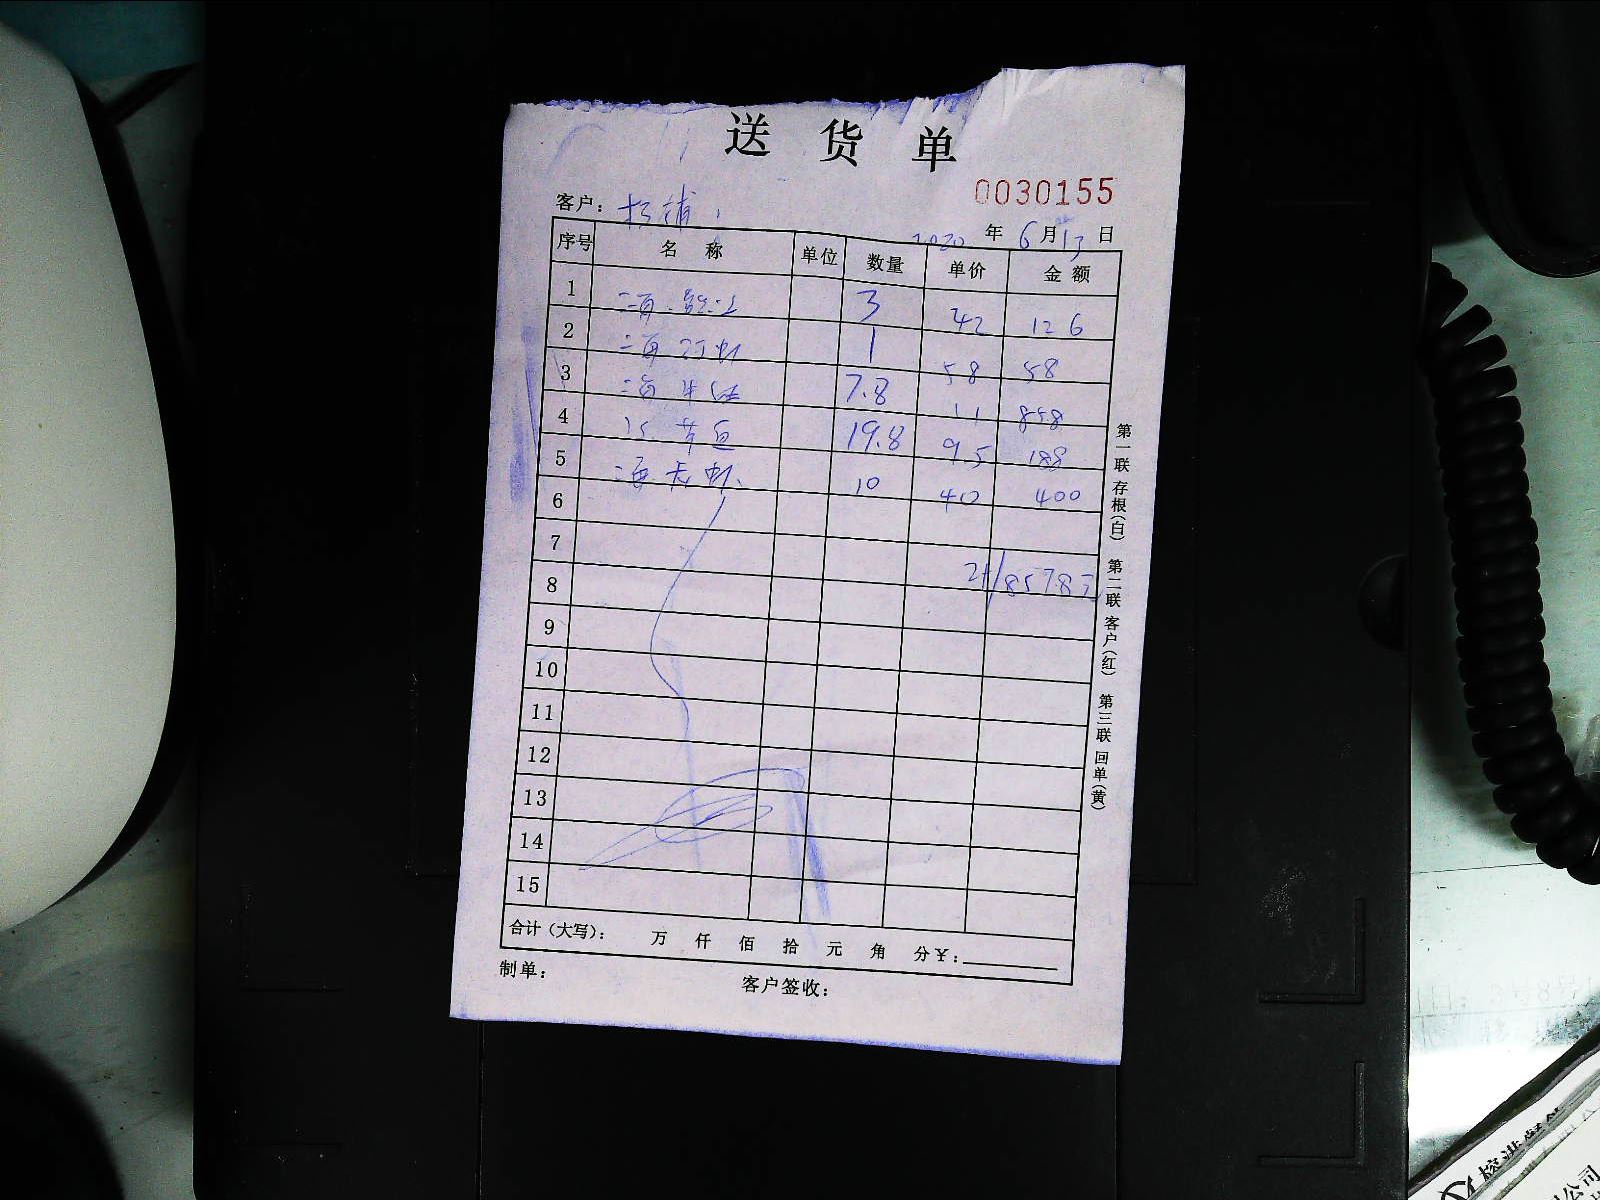 送 货 单
0030155
客户:
2020 年 6 月 13 日
序号 名 称 单位 数量 单价 金额
1 3 42 126
2 1 58 58
3 7.8 11 858
4 19.8 9.5 188
5 10 40 400
6
7
8 8578元
9
10
11
12
13
14
15
合计(大写): 万 仟 佰 拾 元 角 分¥:
制单: 客户签收:
第一联 存根(白) 第二联 客户(红) 第三联 回单(黄)